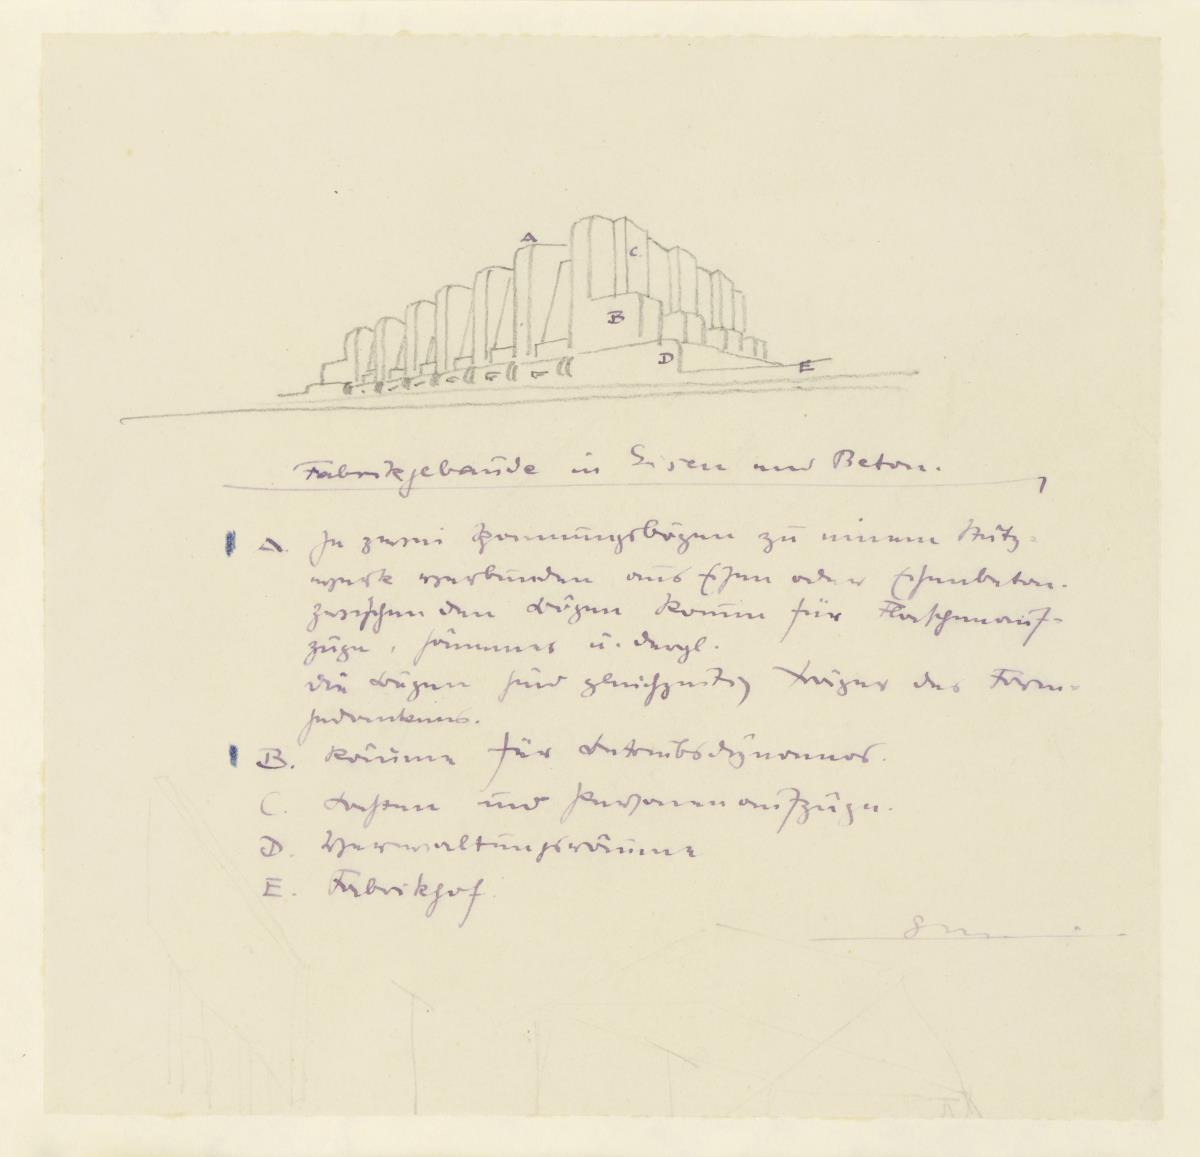 A
C
B
D
E
Fabrikgebäude in Eisen und Beton.
A. Je zwei Spannungsbögen zu einem Stütz-
werk verbunden aus Eisen oder Eisenbeton.
zwischen den Bögen Raum für Flaschenauf-
züge, Hämmer u. dergl.
die Bögen sind gleichzeitig Träger des Form-
gedankens.
B. Räume für Betriebsdÿnamos.
C. Lasten und Personenaufzüge.
D. Verwaltungsräume
E. Fabrikhof